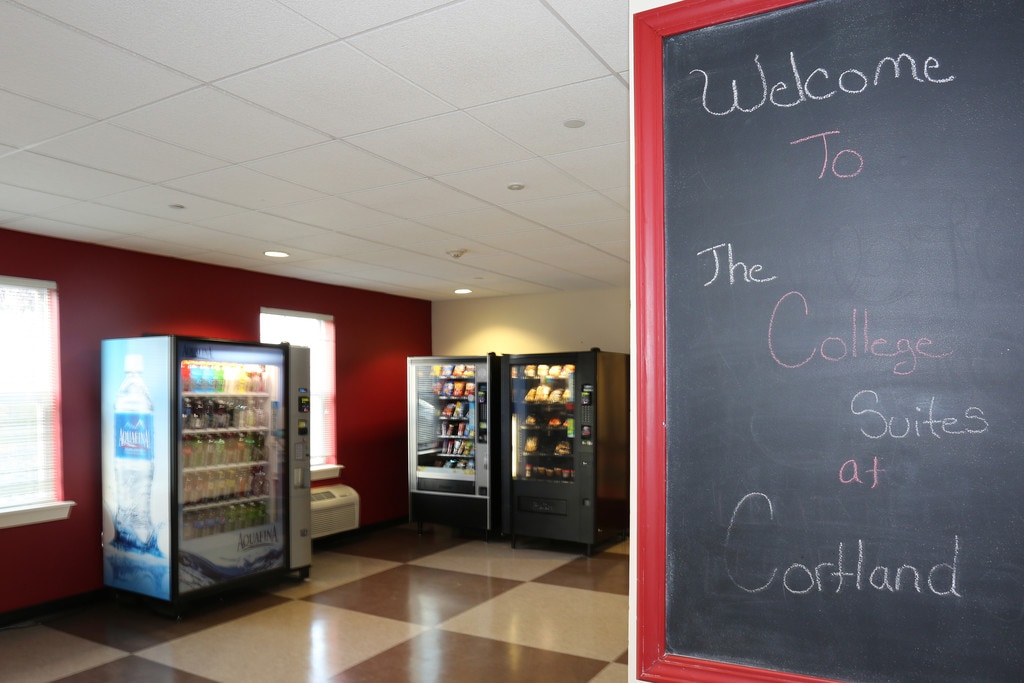 Welcome
To
The
College
Suites
at
Cortland
AQUAFINA
AQUAFINA